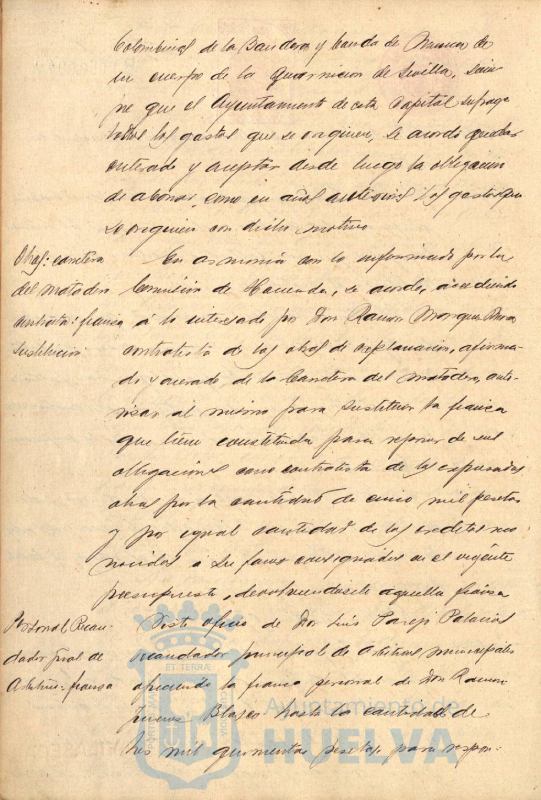 Colombinas de la Bandera y banda de música de
un cuerpo de la Guarnicion de Sevilla, siem
pre que el Ayuntamiento de esta Capital sufrague
todos los gastos que se originen, se acordó quedar
enterado y aceptar desde luego la obligacion
de abonar como en años anteriores los gastos que
se originen con dicho motivo
Obras: carretera
del matadero
contrata: fianza
sustitucion
En armonia con lo informado por la
Comisión de Hacienda, se acordó, accediendo
á lo interesado por Don Ramon Marquez
contratista de las obras de explanacion, afirma-
do y acerado, de la Carretera del matadero, auto-
rizar al mismo para sustituir la fianza
que tiene constituida para responder de sus
obligaciones como contratista de las expresadas
obras por la cantidad de cinco mil pesetas
y por igual cantidad de los creditos reco
nocidos a su favor consignados en el vigente
presupuesto, devolviendosele aquella fianza
Personal Recau-
dador gral de
Arbitrios-fianza
Visto oficio de Don Luis Palacios
recaudador principal de Arbitrios municipales
ofreciendo la fianza personal de Don Ramon
Blazco hasta la cantidad de
tres mil quinientas pesetas para respon-
ET TERRAE
Ayuntamiento de
HUELVA